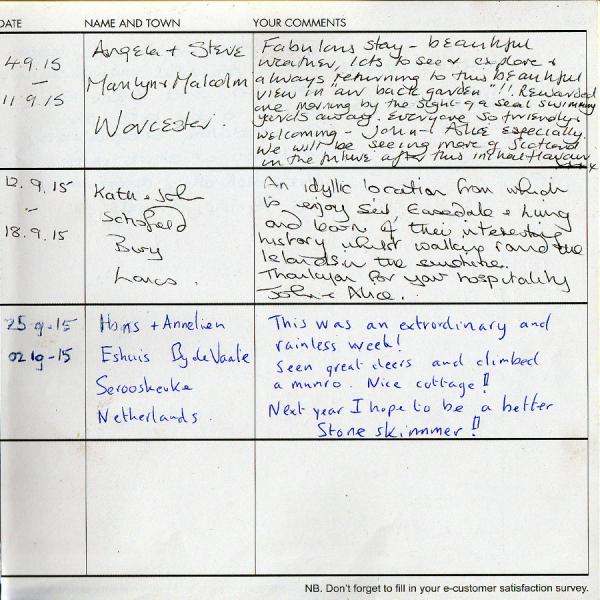 DATE NAME AND TOWN YOUR COMMENTS
4.9.15
—
11.9.15
Angela + Steve
Marilyn + Malcolm
Worcester.
Fabulous stay - beautiful
weather, lots to see + explore +
always returning to this beautiful
view in "our back garden"!!. Rewarded
one morning by the sight of a seal swimming
yards away. Everyone so friendly +
welcoming - John + Alice especially.
We will be seeing more of Scotland
in the future after this
12.9.15
–
18.9.15
Kath + John
Schofield
Bury
Lancs.
An idyllic location from which
to enjoy Seil, Easedale + Luing
and learn of their interesting
history whilst walking round the
Islands in the sunshine.
Thankyou for your hospitality
John + Alice.
25-9-15
02 10-15
Hans + Annelien
Eshuis Bij de Vaate
Serooskerke
Netherlands.
This was an extrordinary and
rainless week!
Seen great deers and climbed
a munro. Nice cottage!!
Next year I hope to be a better
Stone skimmer!!
NB. Don't forget to fill in your e-customer satisfaction survey.